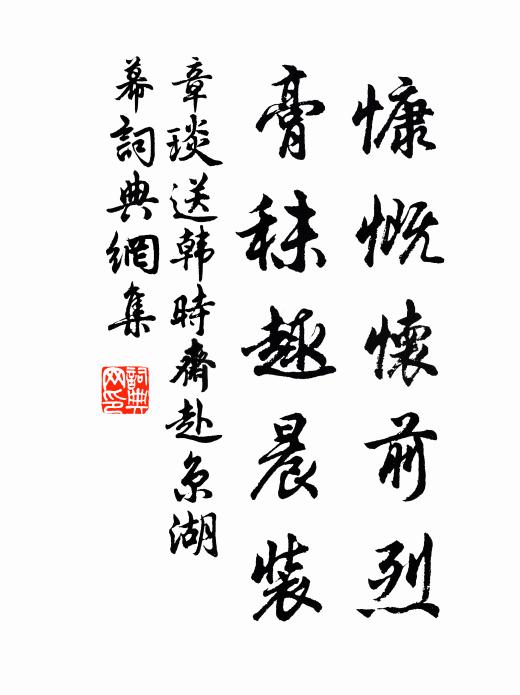 慷慨懷前烈
膏秣趣晨裝
章琰送韩時齋赴京湖
幕詞典網集
詞典网印